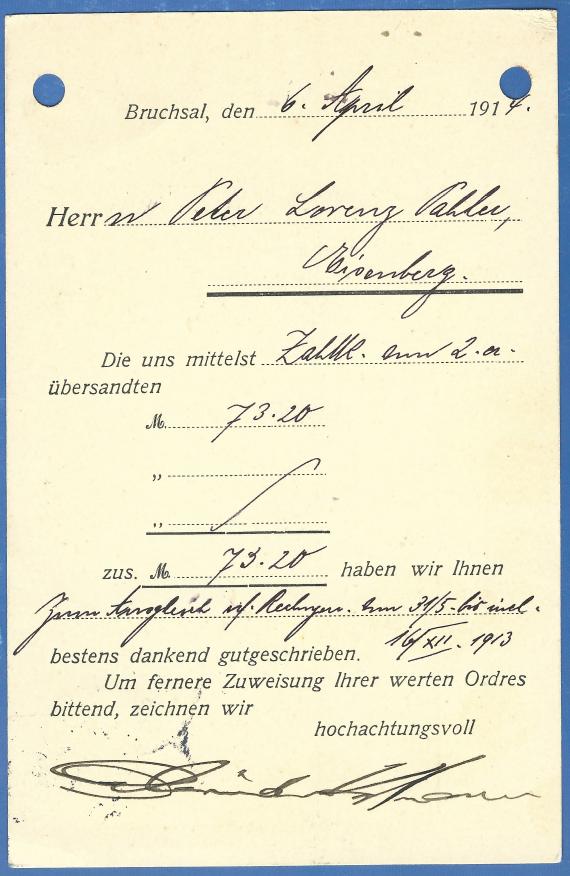 Bruchsal, den 6. April 1914.
Herrn Peter Lorenz Pahler,
Eisenberg.
Die uns mittelst Zahlk. vom 2. a.
übersandten
M. 73.20
„
„
zus. M. 73.20 haben wir Ihnen
zum Ausgleich uf. Rechngn. vom 31/5. bis incl.
16/XII. 1913
bestens dankend gutgeschrieben.
Um fernere Zuweisung Ihrer werten Ordres
bittend, zeichnen wir
hochachtungsvoll